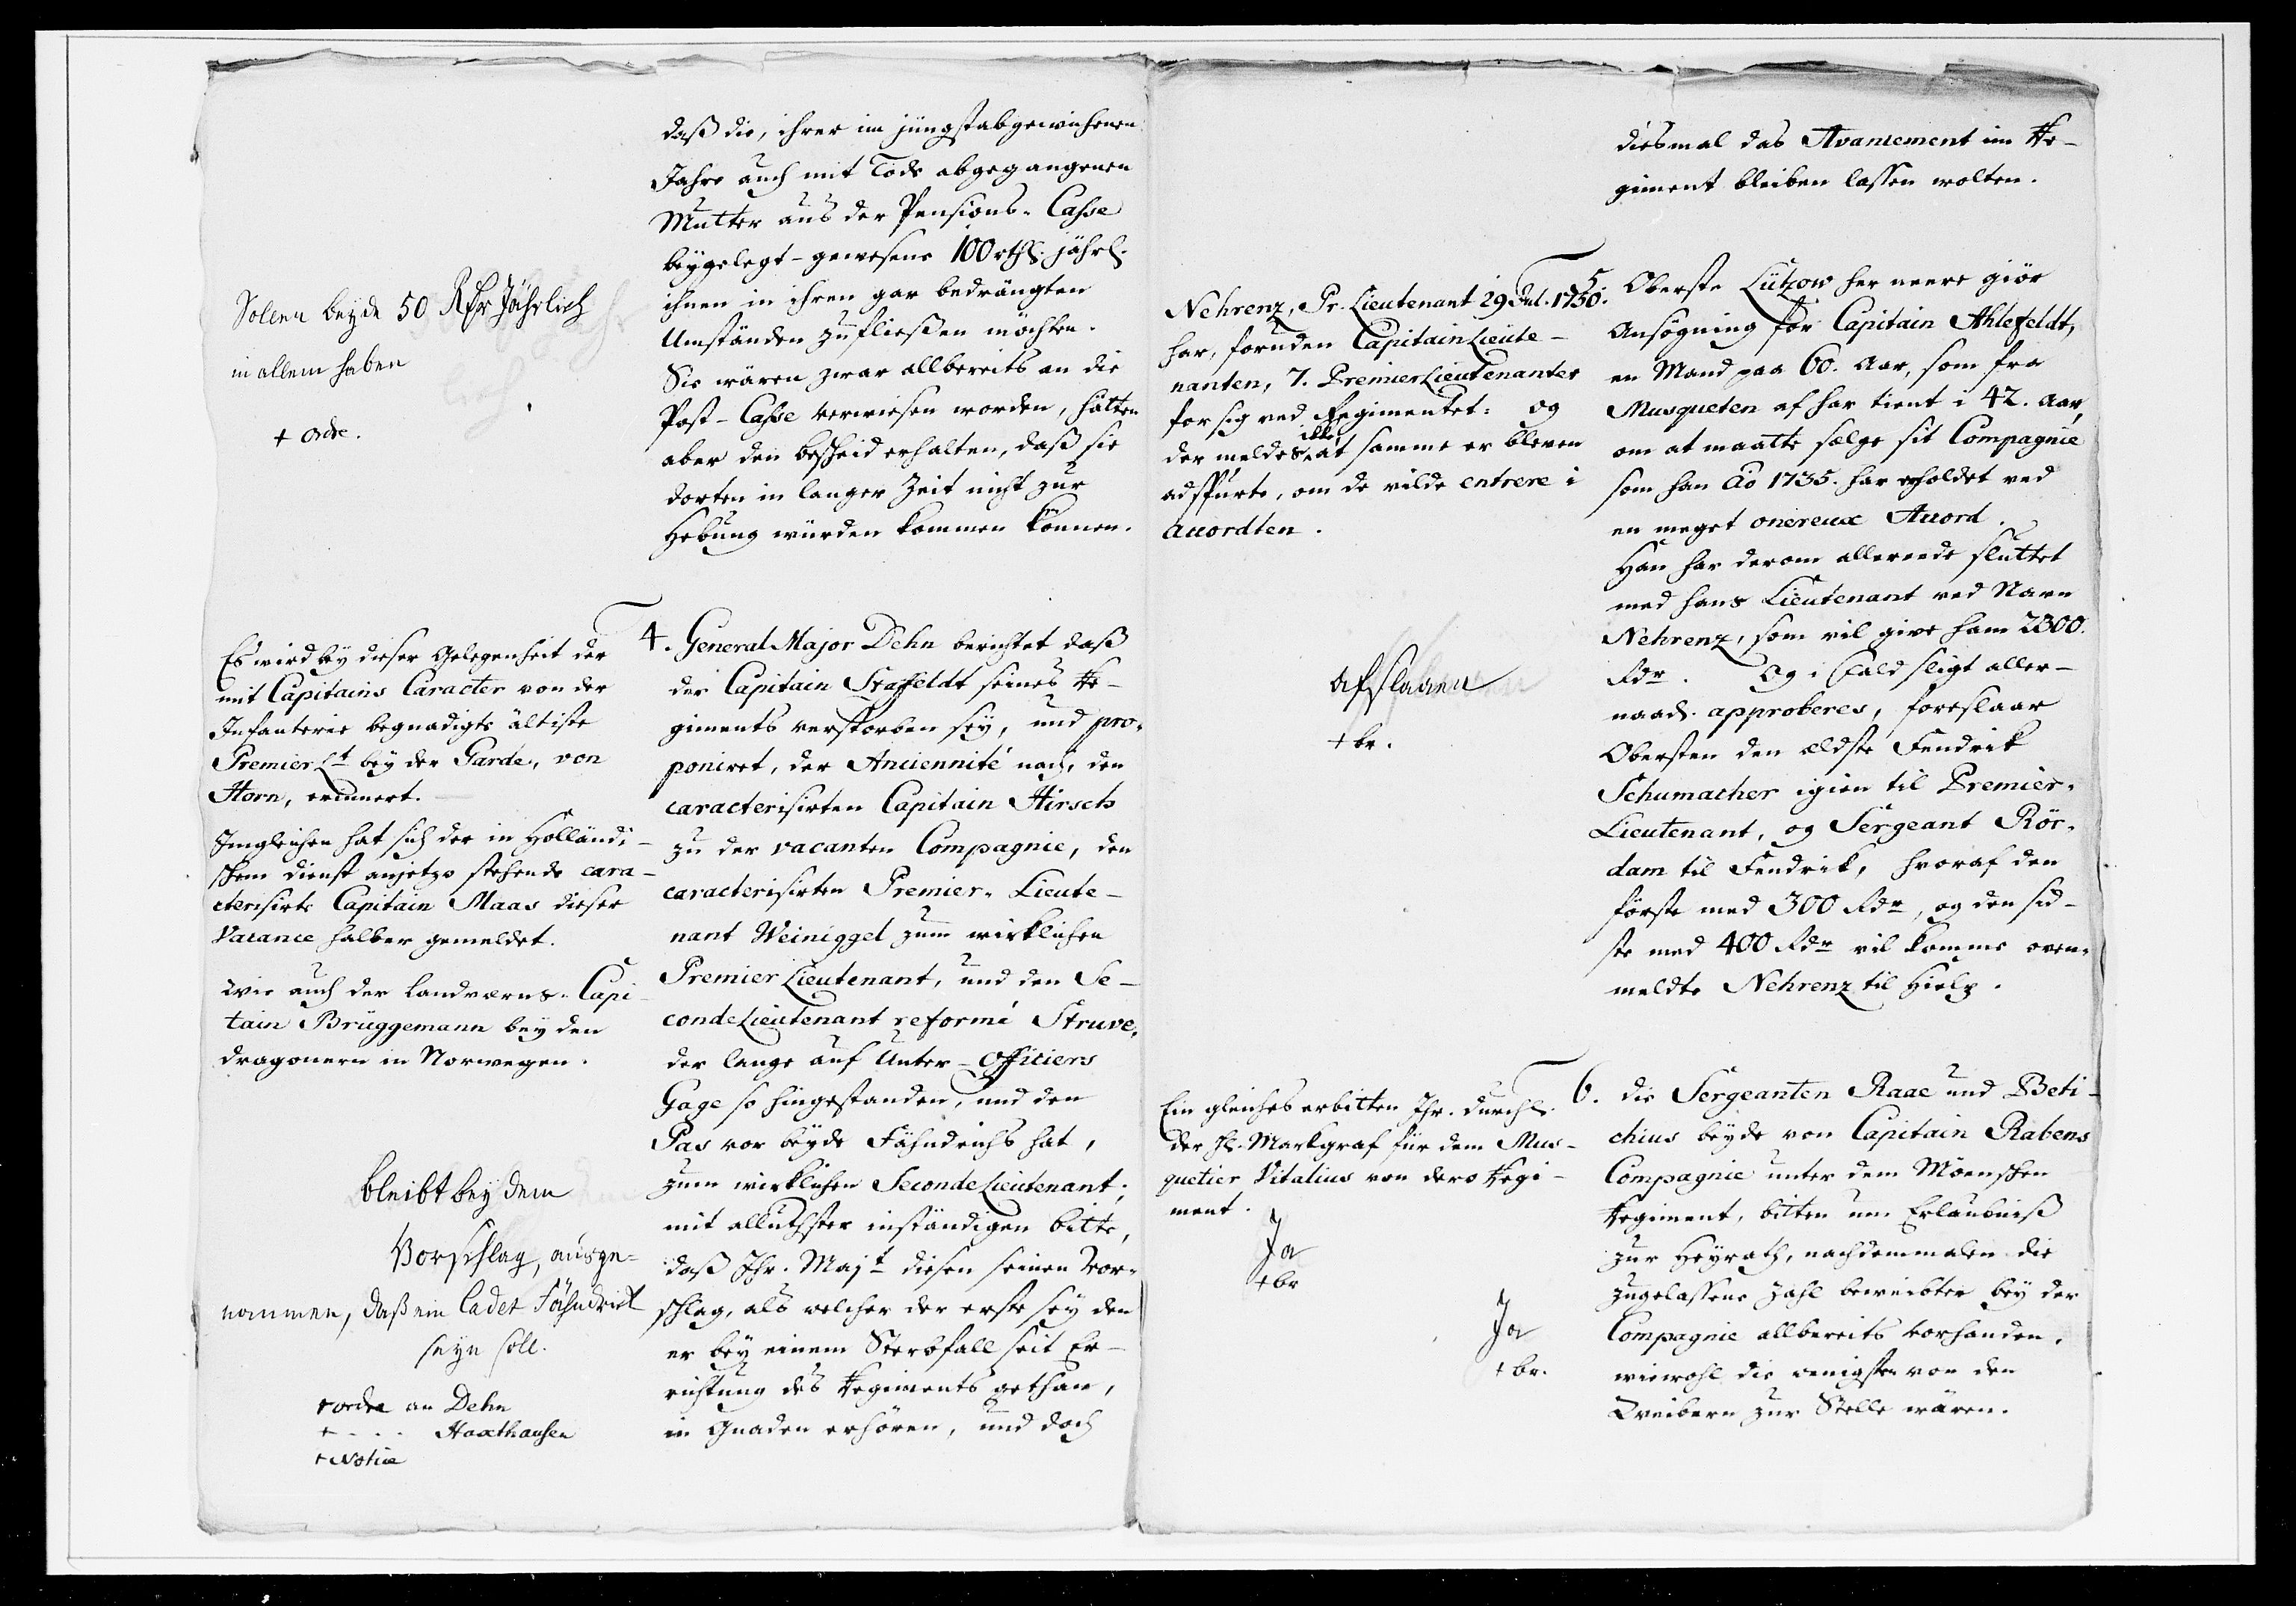 daß die, ihrer im jüngstabgewichenen
Jahre auch mit Tode abgegangenen
Mutter aus der Pensions-Casse
beygelegt-gewesene 100 rthl. jährl.
ihnen in ihren gar bedrängten
Umständen zufließen möchten.
Sie wären zwar allbereits an die
Post-Casse verwiesen worden, hätten
aber den bescheid erhalten, daß sie
dorten in langer Zeit nicht zur
Hebung würden kommen können.
Sollen beyde 50 Rdr Jährlich
in allem haben
+ ordre.
4. General Major Dehn berichtet daß
der Capitain Staffeldt seines Re-
giments verstorben sey, und pro-
poniret, der Anciennité nach, den
caracterisirten Capitain Hirsch
zu der vacanten Compagnie, den
caracterisirten Premier-Lieute-
nant Weiniggel zum wirklichen
Premier Lieutenant, und den Se-
conde Lieutenant reformé Struve,
der lange auf Unter-Officiers
Gage so hingestanden, und den
Pas vor beyde Fähndrichs hat,
zum wirklichen Seconde Lieutenant;
mit alluthster inständigen bitte,
daß Ihr. Majt diesen seinen Vor-
schlag, als welcher der erste sey den
er bey einem Sterbfall seit Er-
richtung des Regiments gethan,
in Gnaden erhören, und doch
Es wird bey dieser Gelegenheit der
mit Capitains Caracter von der
Infanterie begnadigte älteste
Premier Lt bey der Garde, von
Horn, erinnert.
Imgleichen hat sich der in Holländi-
schem dienst anjetzo stehende cara-
cterisirte Capitain Maas dieser
Vacance halber gemeldet.
Wie auch der Landværns-Capi-
tain Brüggemann bey den
dragonern in Norwegen.
bleibt bey dem
Vorschlag, ausge-
nommen, daß ein Cadet Fähndrick
seyn soll.
+ ordre an Dehn
+ . . . . Haxthausen
+ Notice
diesmal das Avancement im Re-
giment bleiben lassen wolten.
5. Oberste Lützow her neere giör
Ansögning for Capitain Ahlefeldt,
en Mand paa 60. Aar, som fra
Musqueten af har tient i 42. Aar,
om at maatte sælge sit Compagnie
som han Ao 1735. har erholdet ved
en meget onereux Accord.
Han har derom allereede sluttet
med hans Lieutenant ved Navn
Nehrenz, som vil give ham 2300.
Rdr. Og i Fald sligt aller-
naad. approberes, foreslaar
Obersten den ældste Fendrik
Schumacher igien til Premier-
Lieutenant, og Sergeant Rör-
dam til Fendrik, hvoraf den
förste med 300 Rdr, og den sid-
ste med 400 Rdr vil komme oven-
meldte Nehrenz til Hielp.
Nehrenz, Pr. Lieutenant 29 Jul. 1750.
har, foruden Capitain Lieute-
nanten, 7. Premier Lieutenanter
for sig ved Regimentet: og
der meldes ikke, at samme er bleven
adspurte, om de vilde entrere i
accordten.
Afslaaen
+ br.
6. die Sergeanten Raae und Beti-
chius beyde von Capitain Rabens
Compagnie unter dem Möenschen
Regiment, bitten um Erlaubniß
zur Heyrath, nachdemmalen die
zugelassene Zahl beweibter bey der
Compagnie allbereits vorhanden,
wiewohl die wenigsten von den
Weibern zur Stelle wären.
Ein gleiches erbitten Ihr. durchl.
der H. Markgraf für dem Mus-
quetier Vitalius von dero Regi-
ment.
Ja
+ br
Ja
+ br.